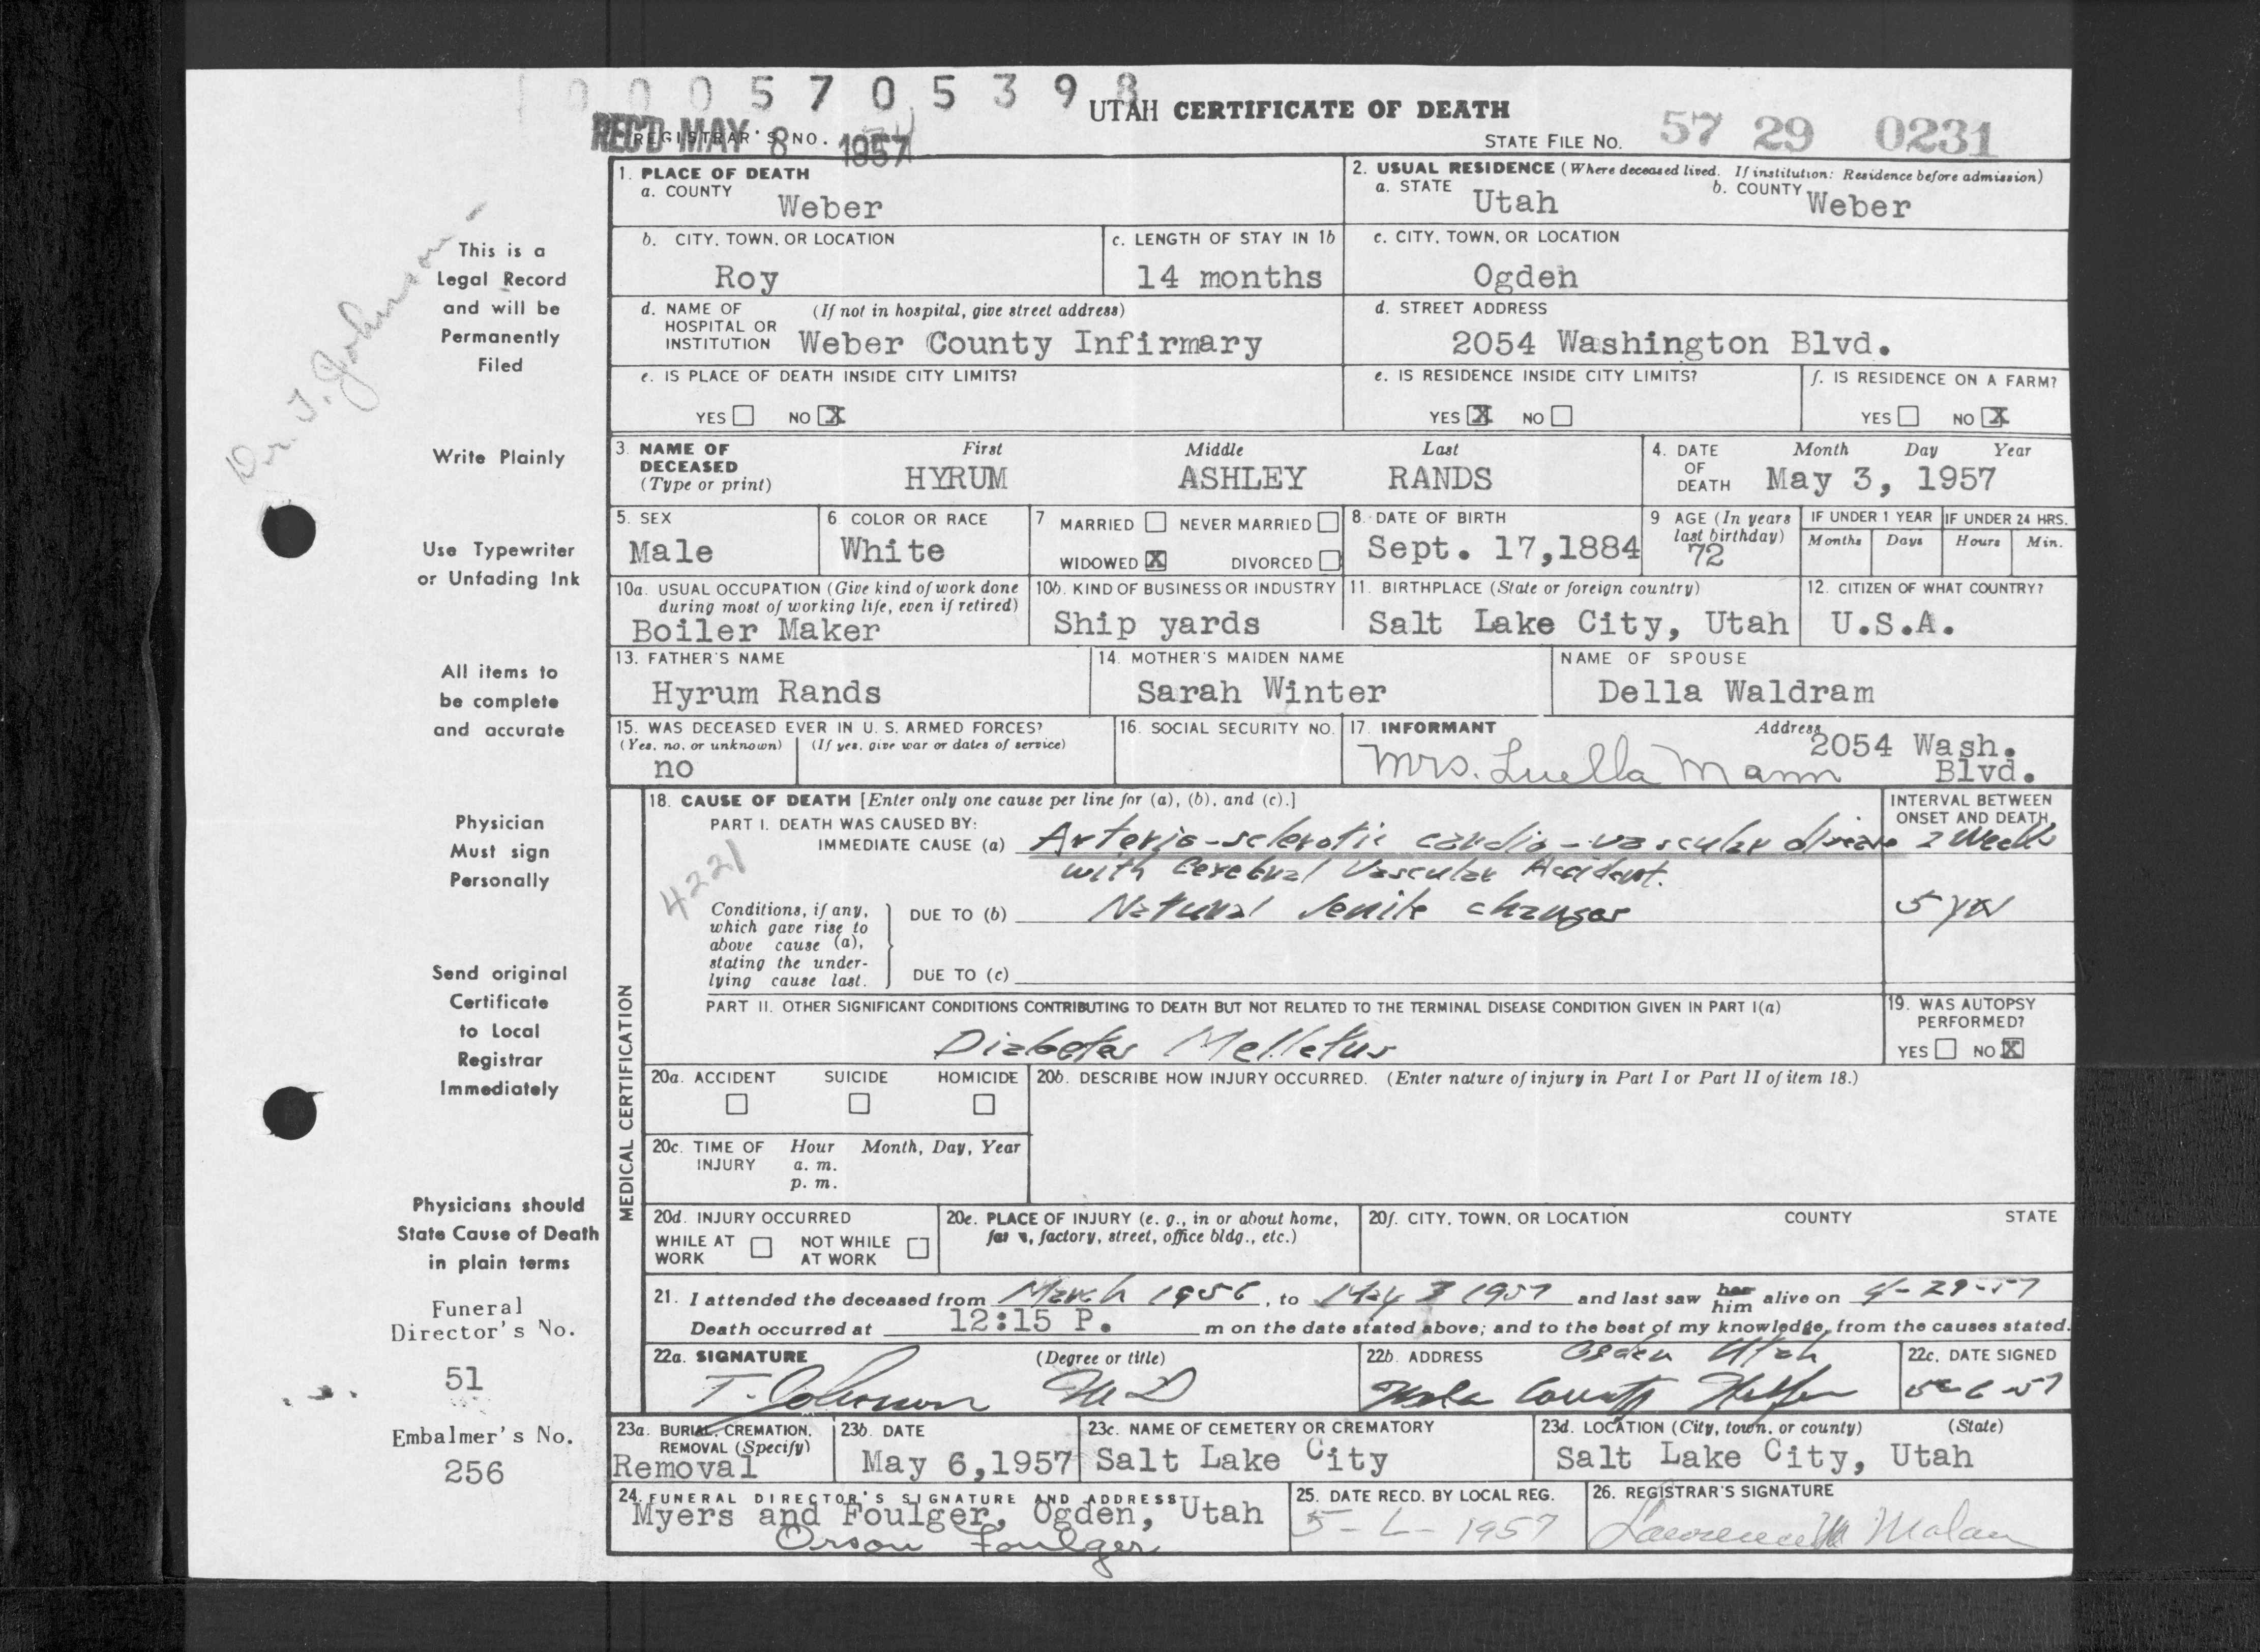 0005705398
UTAH CERTIFICATE OF DEATH
REC'D MAY 8 1957
REGISTRAR'S NO.
STATE FILE NO. 57 29 0231
1. PLACE OF DEATH
a. COUNTY
Weber
2. USUAL RESIDENCE (Where deceased lived. If institution: Residence before admission)
a. STATE Utah b. COUNTY Weber
b. CITY, TOWN, OR LOCATION
Roy
c. LENGTH OF STAY IN 1b
14 months
c. CITY, TOWN, OR LOCATION
Ogden
d. NAME OF HOSPITAL OR INSTITUTION (If not in hospital, give street address)
Weber County Infirmary
d. STREET ADDRESS
2054 Washington Blvd.
e. IS PLACE OF DEATH INSIDE CITY LIMITS?
YES NO X
e. IS RESIDENCE INSIDE CITY LIMITS?
YES X NO
f. IS RESIDENCE ON A FARM?
YES NO X
3. NAME OF DECEASED (Type or print)
First Middle Last
HYRUM ASHLEY RANDS
4. DATE OF DEATH
Month Day Year
May 3, 1957
5. SEX
Male
6. COLOR OR RACE
White
7 MARRIED NEVER MARRIED
WIDOWED X DIVORCED
8. DATE OF BIRTH
Sept. 17,1884
9 AGE (In years last birthday)
72
IF UNDER 1 YEAR
Months Days
IF UNDER 24 HRS.
Hours Min.
10a. USUAL OCCUPATION (Give kind of work done during most of working life, even if retired)
Boiler Maker
10b. KIND OF BUSINESS OR INDUSTRY
Ship yards
11. BIRTHPLACE (State or foreign country)
Salt Lake City, Utah
12. CITIZEN OF WHAT COUNTRY?
U.S.A.
13. FATHER'S NAME
Hyrum Rands
14. MOTHER'S MAIDEN NAME
Sarah Winter
NAME OF SPOUSE
Della Waldram
15. WAS DECEASED EVER IN U. S. ARMED FORCES?
(Yes, no, or unknown) (If yes, give war or dates of service)
no
16. SOCIAL SECURITY NO.
17. INFORMANT Address
Mrs. Luella Mann 2054 Wash. Blvd.
MEDICAL CERTIFICATION
18. CAUSE OF DEATH [Enter only one cause per line for (a), (b), and (c).]
INTERVAL BETWEEN ONSET AND DEATH
PART I. DEATH WAS CAUSED BY:
IMMEDIATE CAUSE (a) Arterio-sclerotic cardio-vascular disease 2 Weeks
with Cerebral Vascular Accident.
4221
Conditions, if any, which gave rise to above cause (a), stating the underlying cause last.
DUE TO (b) Natural Senile changes 5 yrs
DUE TO (c)
PART II. OTHER SIGNIFICANT CONDITIONS CONTRIBUTING TO DEATH BUT NOT RELATED TO THE TERMINAL DISEASE CONDITION GIVEN IN PART I(a)
Diabetes Melletus
19. WAS AUTOPSY PERFORMED?
YES NO X
20a. ACCIDENT SUICIDE HOMICIDE
20b. DESCRIBE HOW INJURY OCCURRED. (Enter nature of injury in Part I or Part II of item 18.)
20c. TIME OF INJURY Hour Month, Day, Year
a. m.
p. m.
20d. INJURY OCCURRED
WHILE AT WORK NOT WHILE AT WORK
20e. PLACE OF INJURY (e. g., in or about home, farm, factory, street, office bldg., etc.)
20f. CITY, TOWN, OR LOCATION COUNTY STATE
21. I attended the deceased from March 1956, to May 3 1957 and last saw her him alive on 4-29-57
Death occurred at 12:15 P. m on the date stated above; and to the best of my knowledge, from the causes stated.
22a. SIGNATURE (Degree or title)
T. Johnson MD
22b. ADDRESS
Ogden Utah
County
22c. DATE SIGNED
5-6-57
23a. BURIAL, CREMATION, REMOVAL (Specify)
Removal
23b. DATE
May 6,1957
23c. NAME OF CEMETERY OR CREMATORY
Salt Lake City
23d. LOCATION (City, town, or county) (State)
Salt Lake City, Utah
24. FUNERAL DIRECTOR'S SIGNATURE AND ADDRESS
Myers and Foulger, Ogden, Utah
Orson Foulger
25. DATE RECD. BY LOCAL REG.
5-6-1957
26. REGISTRAR'S SIGNATURE
Lawrence M Malan
Dr. T. Johnson
This is a
Legal Record
and will be
Permanently
Filed
Write Plainly
Use Typewriter
or Unfading Ink
All items to
be complete
and accurate
Physician
Must sign
Personally
Send original
Certificate
to Local
Registrar
Immediately
Physicians should
State Cause of Death
in plain terms
Funeral
Director's No.
51
Embalmer's No.
256